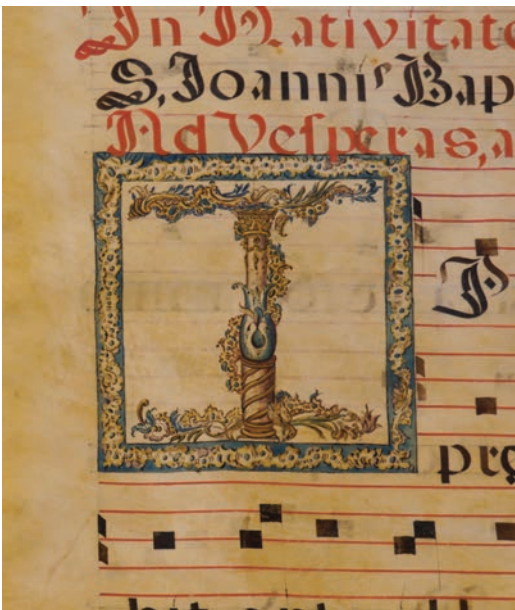 In Nativitate
S, Joannis Bap
Ad Veſperas, a
I P
prę